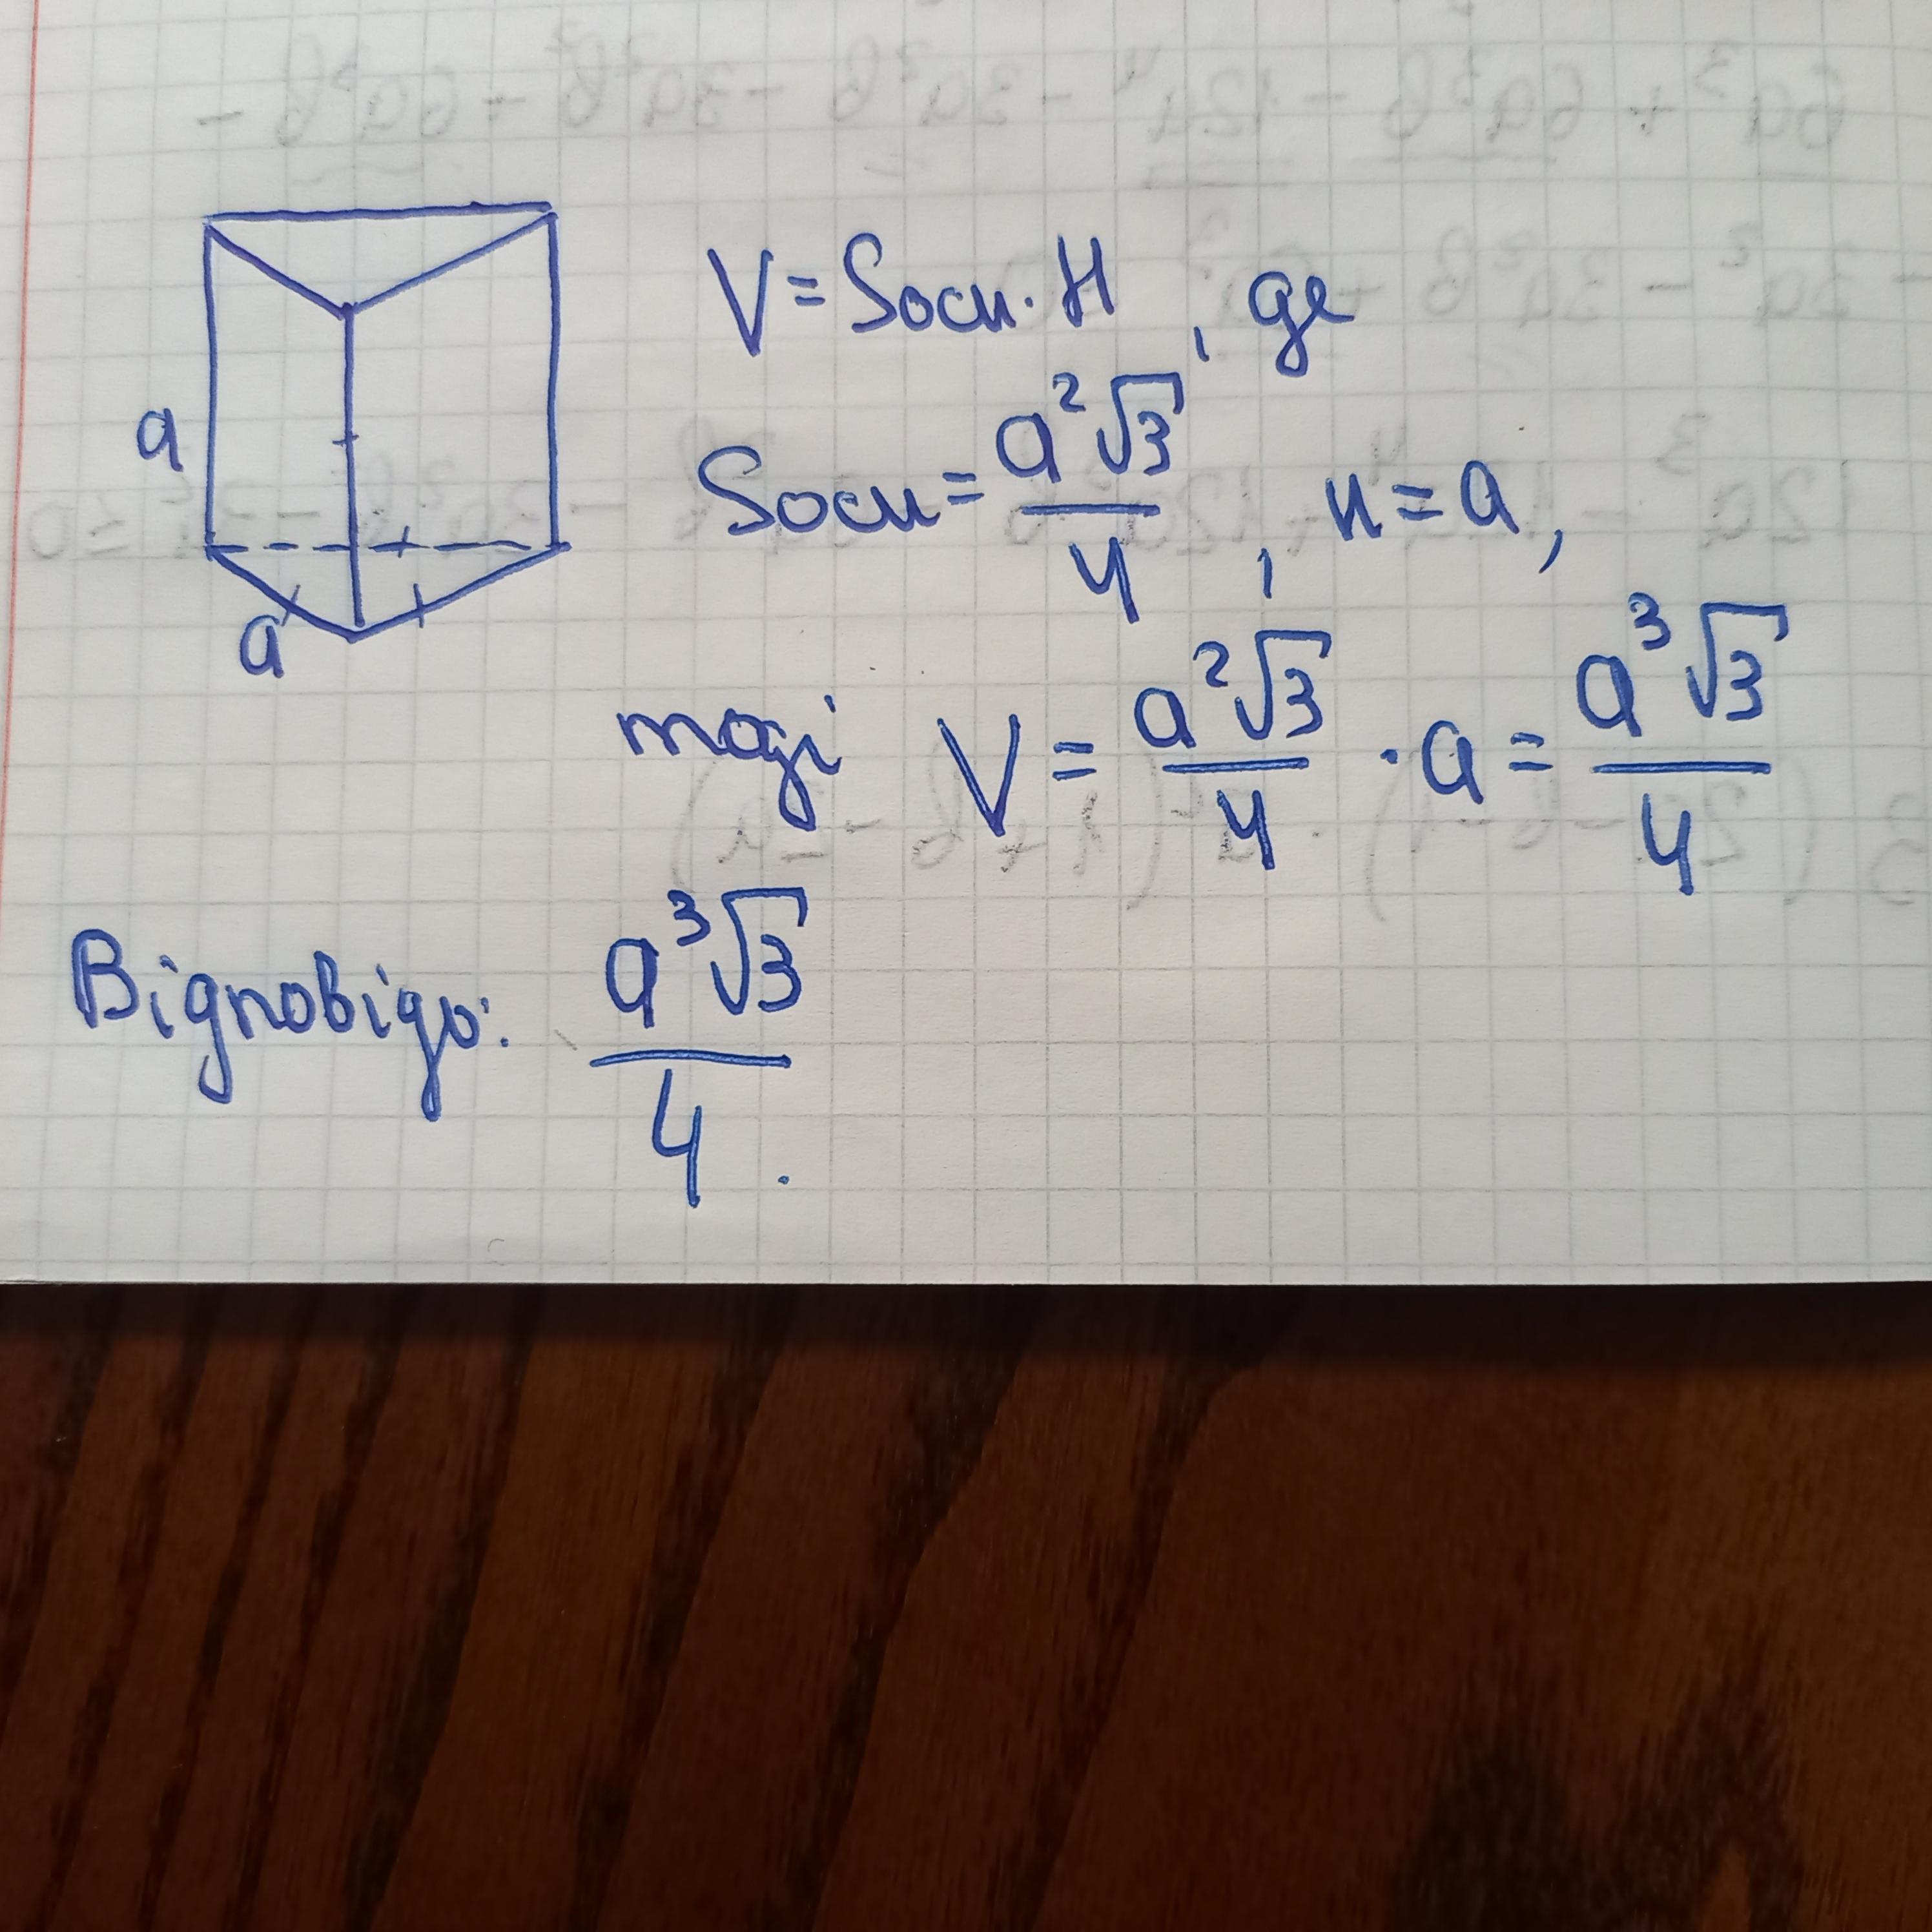 V = Sосн · H, де
a
Sосн = a²√3/4, н = a,
a
тоді V = a²√3/4 · a = a³√3/4
Відповідь: a³√3/4.